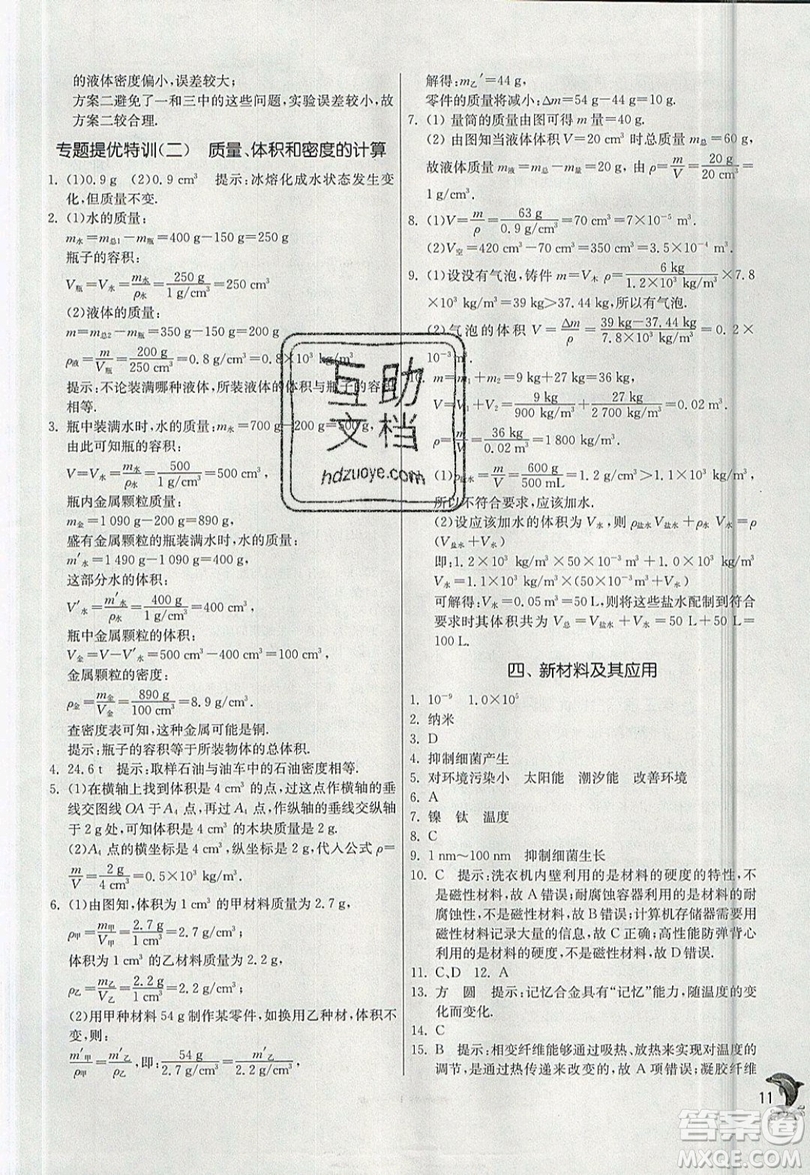 的液体密度偏小,误差较大;
方案二避免了一和三中的这些问题,实验误差较小,故
方案二较合理.
专题提优特训(二) 质量、体积和密度的计算
1. (1)0.9 g (2)0.9 cm³ 提示:冰熔化成水状态发生变
化,但质量不变.
2. (1)水的质量:
m水=m总1-m瓶=400 g-150 g=250 g
瓶子的容积:
V瓶=V水=m水/ρ水=250 g/1 g/cm³=250 cm³
(2)液体的质量:
m=m总2-m瓶=350 g-150 g=200 g
ρ液=m液/V瓶=200 g/250 cm³=0.8 g/cm³=0.8×10³ kg/m³
提示:不论装满哪种液体,所装液体的体积与瓶子的容积
相等.
3. 瓶中装满水时,水的质量:m水=700 g-200 g=500 g
由此可知瓶的容积:
V=V水=m水/ρ水=500 g/1 g/cm³=500 cm³
瓶内金属颗粒质量:
m金=1 090 g-200 g=890 g,
盛有金属颗粒的瓶装满水时,水的质量:
m′水=1 490 g-1 090 g=400 g
这部分水的体积:
V′水=m′水/ρ水=400 g/1 g/cm³=400 cm³
瓶中金属颗粒的体积:
V金=V水-V′水=500 cm³-400 cm³=100 cm³
金属颗粒的密度:
ρ金=m金/V金=890 g/100 cm³=8.9 g/cm³.
查密度表可知,这种金属可能是铜.
提示:瓶子的容积等于所装物体的总体积.
4. 24.6 t 提示:取样石油与油车中的石油密度相等.
5. (1)在横轴上找到体积是 4 cm³,过这点作横轴的垂
线交图线 OA 于 A₄ 点,再过 A₄ 点,作纵轴的垂线交纵轴
于 2 g 处,可知体积是 4 cm³ 的木块质量是 2 g.
(2)A₄ 点的横坐标是 4 cm³,纵坐标是 2 g,代人公式 ρ=
m/V=2 g/4 cm³=0.5×10³ kg/m³.
6. (1)由图知,体积为 1 cm³ 的甲材料质量为 2.7 g,
ρ甲=m甲/V甲=2.7 g/1 cm³=2.7 g/cm³
体积为 1 cm³ 的乙材料质量为 2.2 g,
ρ乙=m乙/V乙=2.2 g/1 cm³=2.2 g/cm³
(2)用甲种材料 54 g 制作某零件,如换用乙种材,体积
不变,则:
m′甲/ρ甲=m′乙/ρ乙,即:54 g/2.7 g/cm³=m′乙/2.2 g/cm³
解得:m乙′=44 g,
零件的质量将减小:Δm=54 g-44 g=10 g.
7. (1) 量筒的质量由图可得 m=20 g.
(2) 由图知当液体体积 V=20 cm³ 时总质量 m总=40 g,
故液体质量 m液=20 g,液体的密度 ρ=m/V=20 g/20 cm³=
1 g/cm³.
8. (1)V=m/ρ=63 g/0.9 g/cm³=70 cm³=7×10⁻⁵ m³.
(2)V空=420 cm³-70 cm³=350 cm³=3.5×10⁻⁴ m³.
9. (1)设没有气泡,铸件 m=V木 ρ=6 kg/1.2×10³ kg/m³×7.8
×10³ kg/m³=39 kg>37.44 kg,所以有气泡.
(2)气泡的体积 V=Δm/ρ=39 kg-37.44 kg/7.8×10³ kg/m³=0.2×
10⁻³ m³.
10. m=m₁+m₂=9 kg+27 kg=36 kg
V=V₁+V₂=9 kg/900 kg/m³+27 kg/2 700 kg/m³=0.02 m³
ρ=m/V=36 kg/0.02 m³=1 800 kg/m³.
(1)ρ=m/V=600 g/500 mL=1.2 g/cm³>1.1×10³ kg/m³,
所以不符合要求,应该加水.
(2)设应该加水的体积为 V水,则 ρ盐水V盐水+ρ水V水=ρ
(V盐水+V水)
即:1.2×10³ kg/m³×50×10⁻³ m³+1.0×10³ kg/m³
×V水=1.1×10³ kg/m³×(50×10⁻³ m³+V水)
可解得:V水=0.05 m³=50 L,则将这些盐水配制到符合
要求时其体积共为 V总=V盐水+V水=50 L+50 L=
100 L.
四、新材料及其应用
1. 10⁻⁹ 1.0×10⁵
2. 纳米
3. D
4. 抑制细菌产生
5. 对环境污染小 太阳能 潮汐能 改善环境
6. A
7. 镍 钛 温度
8. C
9. 1 nm～100 nm 抑制细菌生长
10. C 提示:洗衣机内壁利用的是材料的硬度的特性,不
是磁性材料,故 A 错误;耐腐蚀容器利用的是材料的耐
腐蚀性,不是磁性材料,故 B 错误;计算机存储器需要用
磁性材料记录大量的信息,故 C 正确;高性能防弹背心
利用的是材料的硬度,不是磁性材料,故 D 错误.
11. C、D 12. A
13. 方 圆 提示:记忆合金具有“记忆”能力,随温度的变
化而变化.
14. C
15. B 提示:相变纤维能够通过吸热、放热来实现对温度的
的调节,是通过热传递来实现的,故 A 错误;凝胶纤维
11
互助
文档
hdzuoye.com
答案圈
MXQE.COM